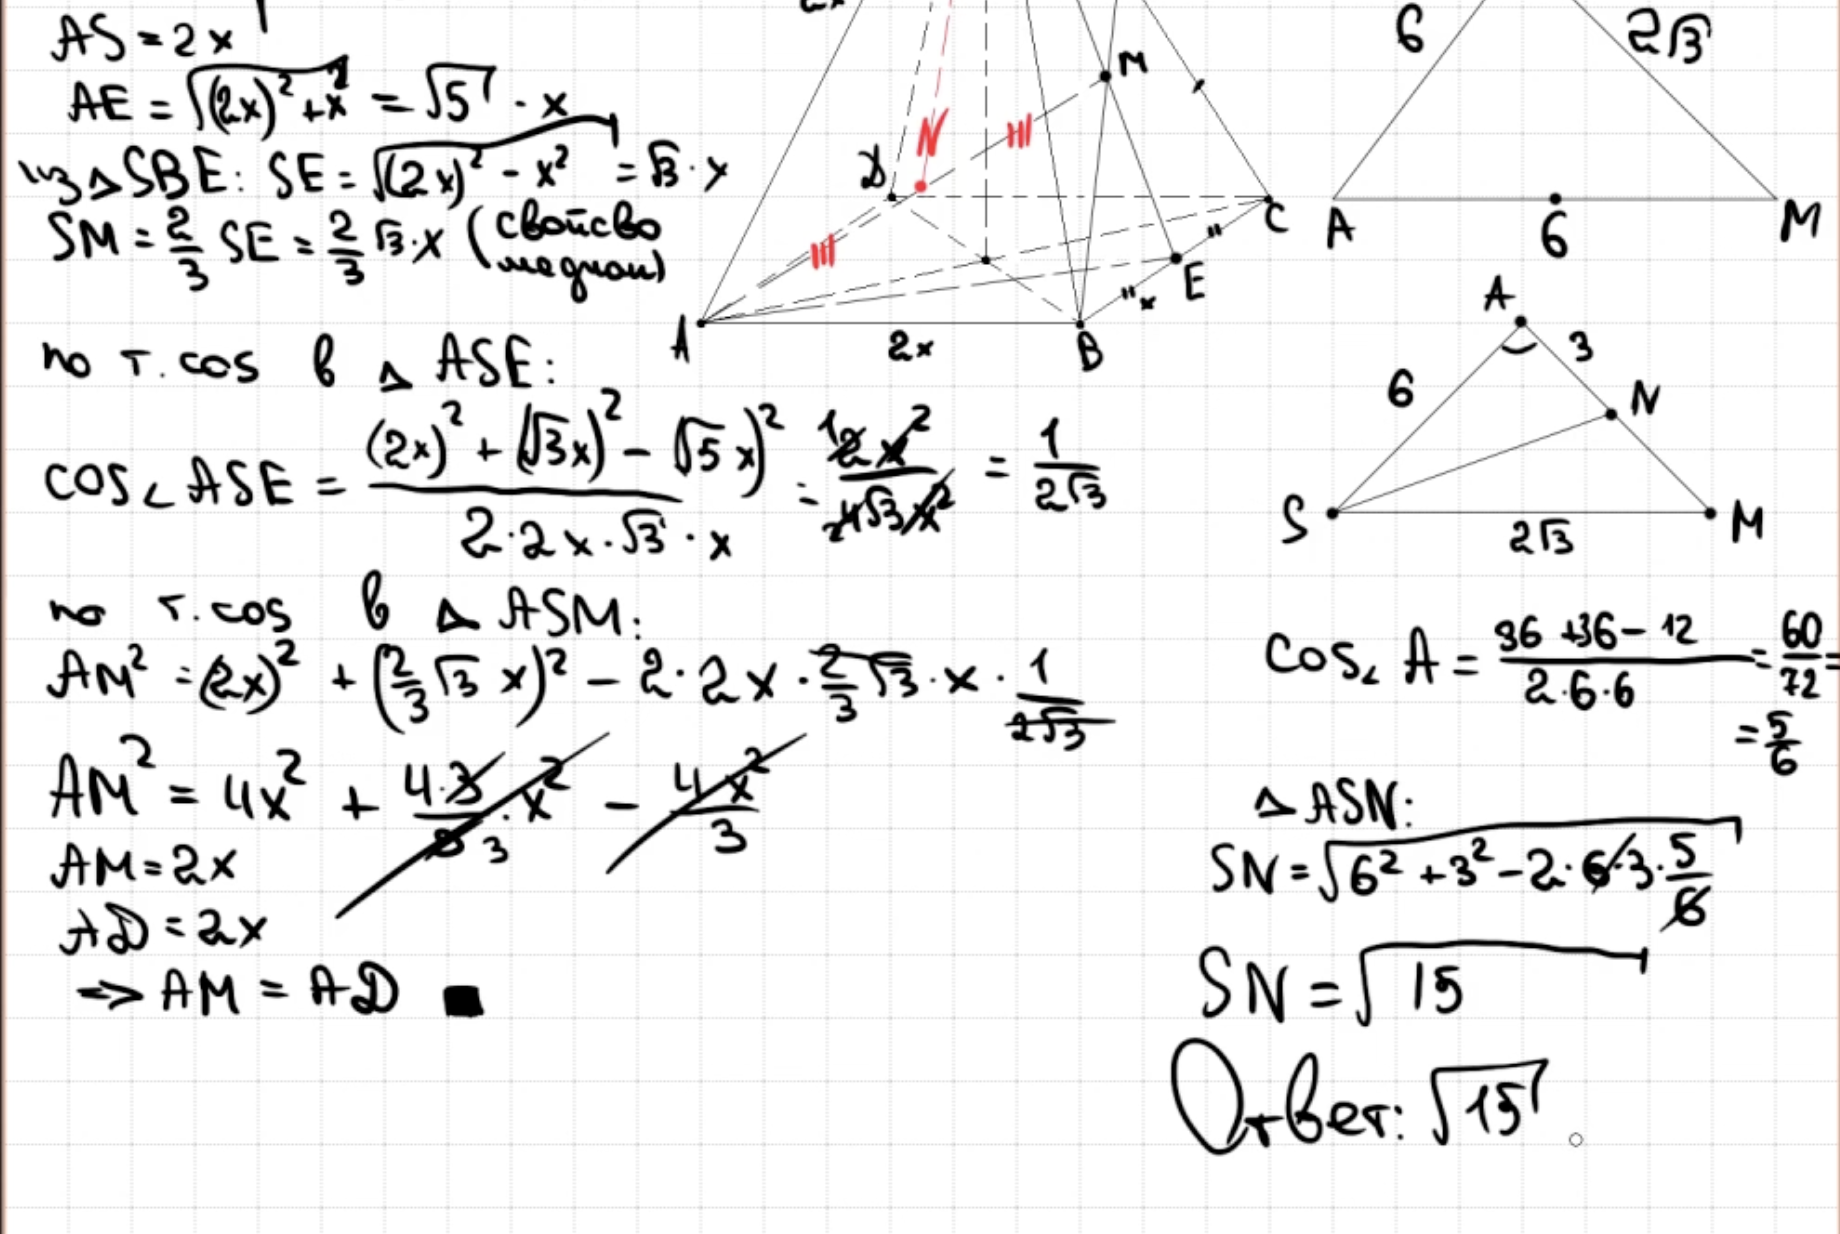 AS = 2x
AE = √((2x)² + x²) = √5 · x
из △ SBE: SE = √((2x)² - x²) = √3 · x
SM = 2/3 SE = 2/3 √3 · x (свойсво
медиан)
по т. cos в △ ASE:
cos∠ ASE = ((2x)² + (√3x)² - (√5x)²)/(2·2x·√3·x) = 12x²/24√3x² = 1/(2√3)
по т. cos в △ ASM:
AM² = (2x)² + (2/3 √3 x)² - 2·2x · 2/3 √3 · x · 1/(2√3)
AM² = 4x² + (4·3)/(3 3) · x² - 4x²/3
AM = 2x
AD = 2x
=> AM = AD ■
M
N
D
C
E
x
A
2x
B
6
2√3
A
6
M
A
3
6
N
S
2√3
M
cos∠ A = (36 + 36 - 12)/(2·6·6) = 60/72 =
= 5/6
△ ASN:
SN = √(6² + 3² - 2·6·3·5/6)
SN = √15
Ответ: √15